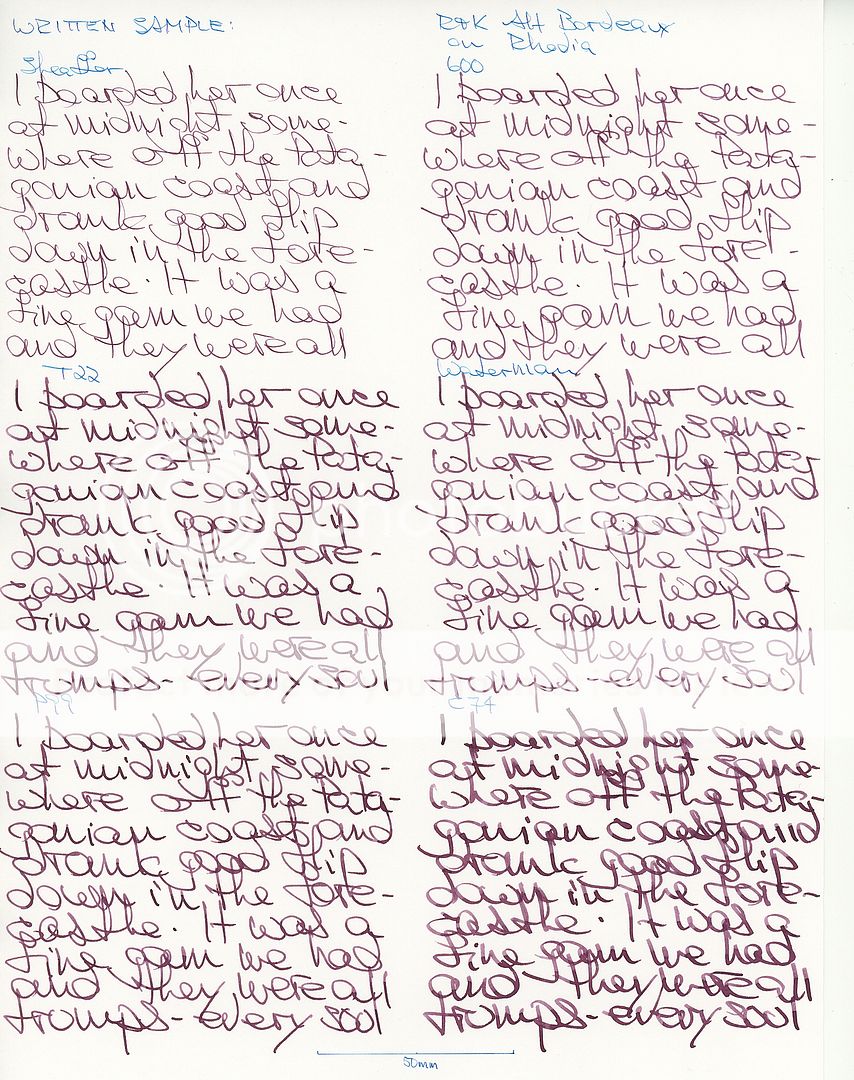 WRITTEN SAMPLE:
R&K Alt Bordeaux
on Rhodia
Sheaffer
I boarded her once
at midnight some-
where off the Pata-
gonian coast and
drank good flip
down in the fore-
castle. It was a
fine gam we had
and they were all
600
I boarded her once
at midnight some-
where off the Pata-
gonian coast and
drank good flip
down in the fore-
castle. It was a
fine gam we had
and they were all
T22
I boarded her once
at midnight some-
where off the Pata-
gonian coast and
drank good flip
down in the fore-
castle. It was a
fine gam we had
and they were all
trumps - every soul
Waterman
I boarded her once
at midnight some-
where off the Patag
gonian coast and
drank good flip
down in the fore-
castle. It was a
fine gam we had
and they were all
trumps - every soul
P99
I boarded her once
at midnight some-
where off the Pata-
gonian coast and
drank good flip
down in the fore-
castle. It was a
fine gam we had
and they were all
trumps - every soul
C74
I boarded her once
at midnight some-
where off the Pata-
gonian coast and
drank good flip
down in the fore-
castle. It was a
fine gam we had
and they were all
trumps - every soul
50mm